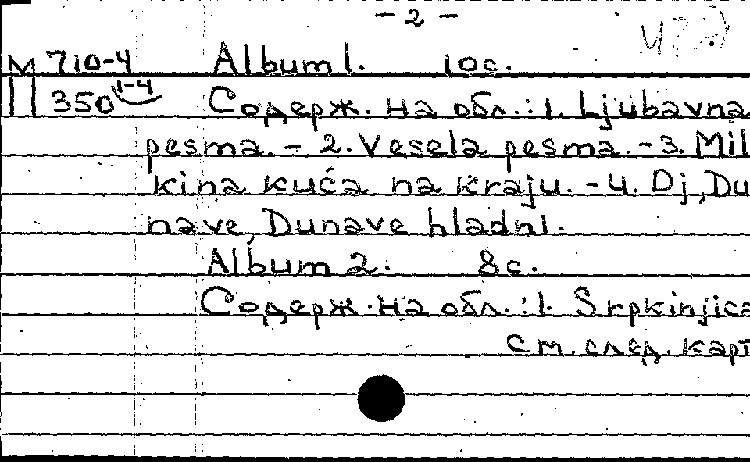 - 2 -
М 710-4 Album 1. 10 с.
П 350 1-4 Содерж. на обл.: 1. Ljubavna
pesma. - 2. Vesela pesma. - 3. Mil
kina kuća na kraju. - 4. Oj, Du
nave, Dunave hladni.
Album 2. 8 с.
Содерж. на обл.: 1. Srpkinjica
см. след. карт